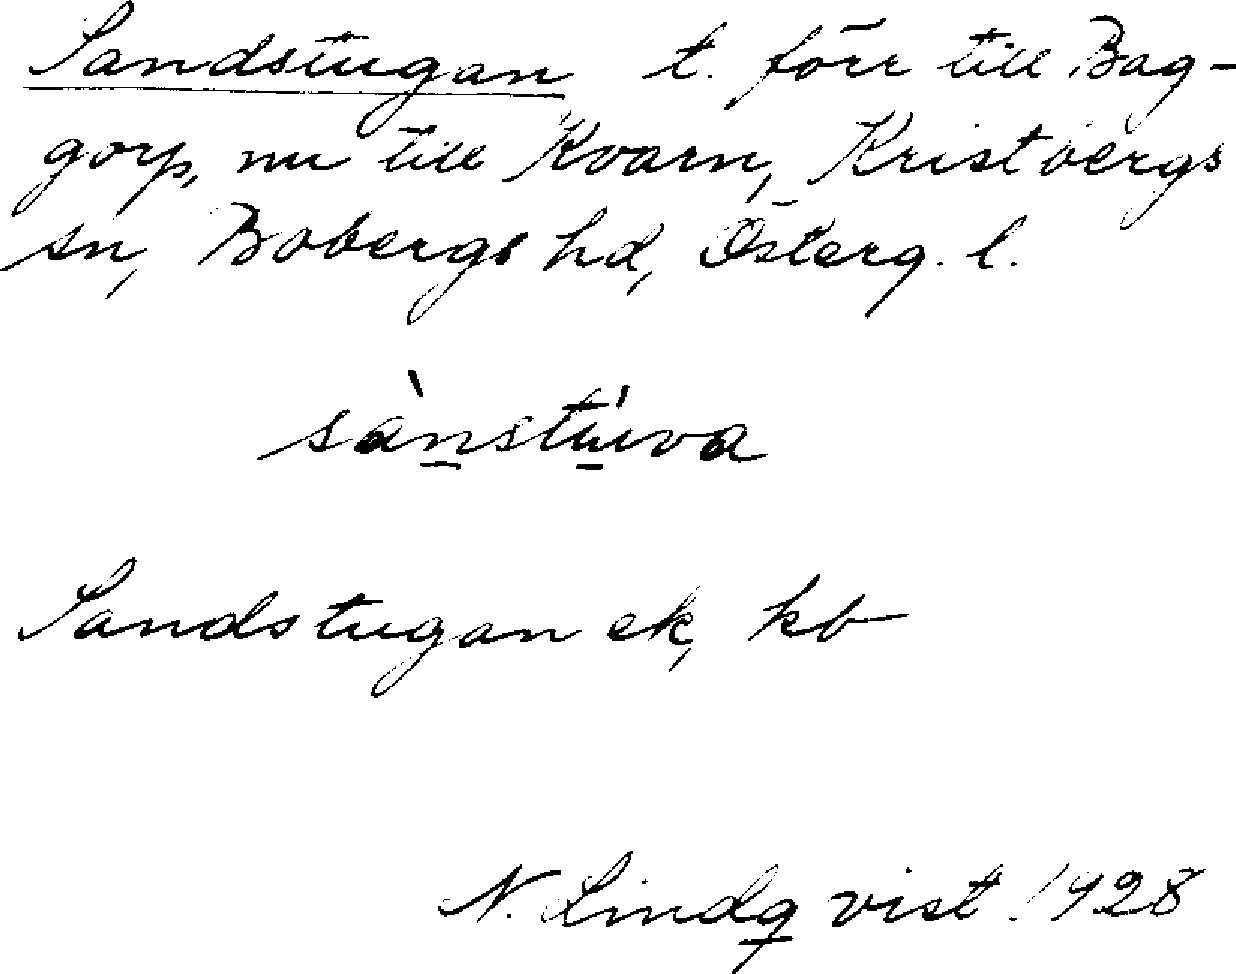 Sandstugan t. förr till Bag-
gorp, nu till Kvarn, Kristbergs
sn, Bobergs hd, Österg. l.
sànstúva
Sandstugan ek, kb
N. Lindqvist 1928